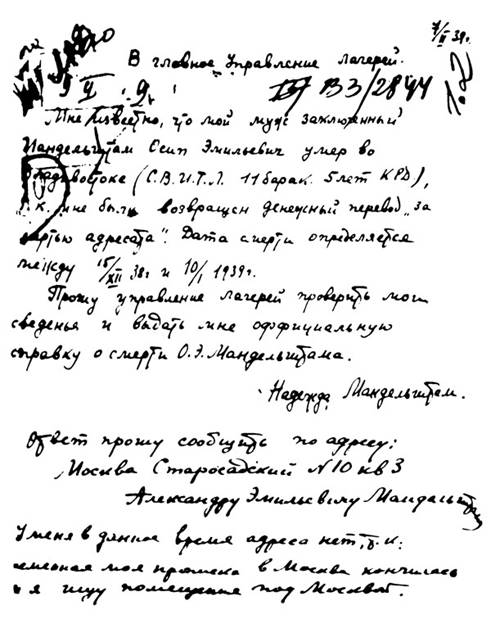 7/II 39г.
В главное Управление лагерей.
B3/2844
Мне известно, что мой муж заключенный
Мандельштам Осип Эмильевич умер во
Владивостоке (С.В.И.Т.Л. 11 барак. 5 лет КРД),
т.к. мне был возвращен денежный перевод „за
смертью адресата". Дата смерти определяется
между 15/XII 38г и 10/I 1939г.
Прошу управление лагерей проверить мои
сведенья и выдать мне оффициальную
справку о смерти О.Э. Мандельштама.
Надежда Мандельштам.
Ответ прошу сообщить по адресу:
Москва Старосадский N10 кв 3
Александру Эмильевичу Мандельштам
У меня в данное время адреса нет, т.к.
моя прописка в Москва кончилась
и я ищу помещение под Москвой.